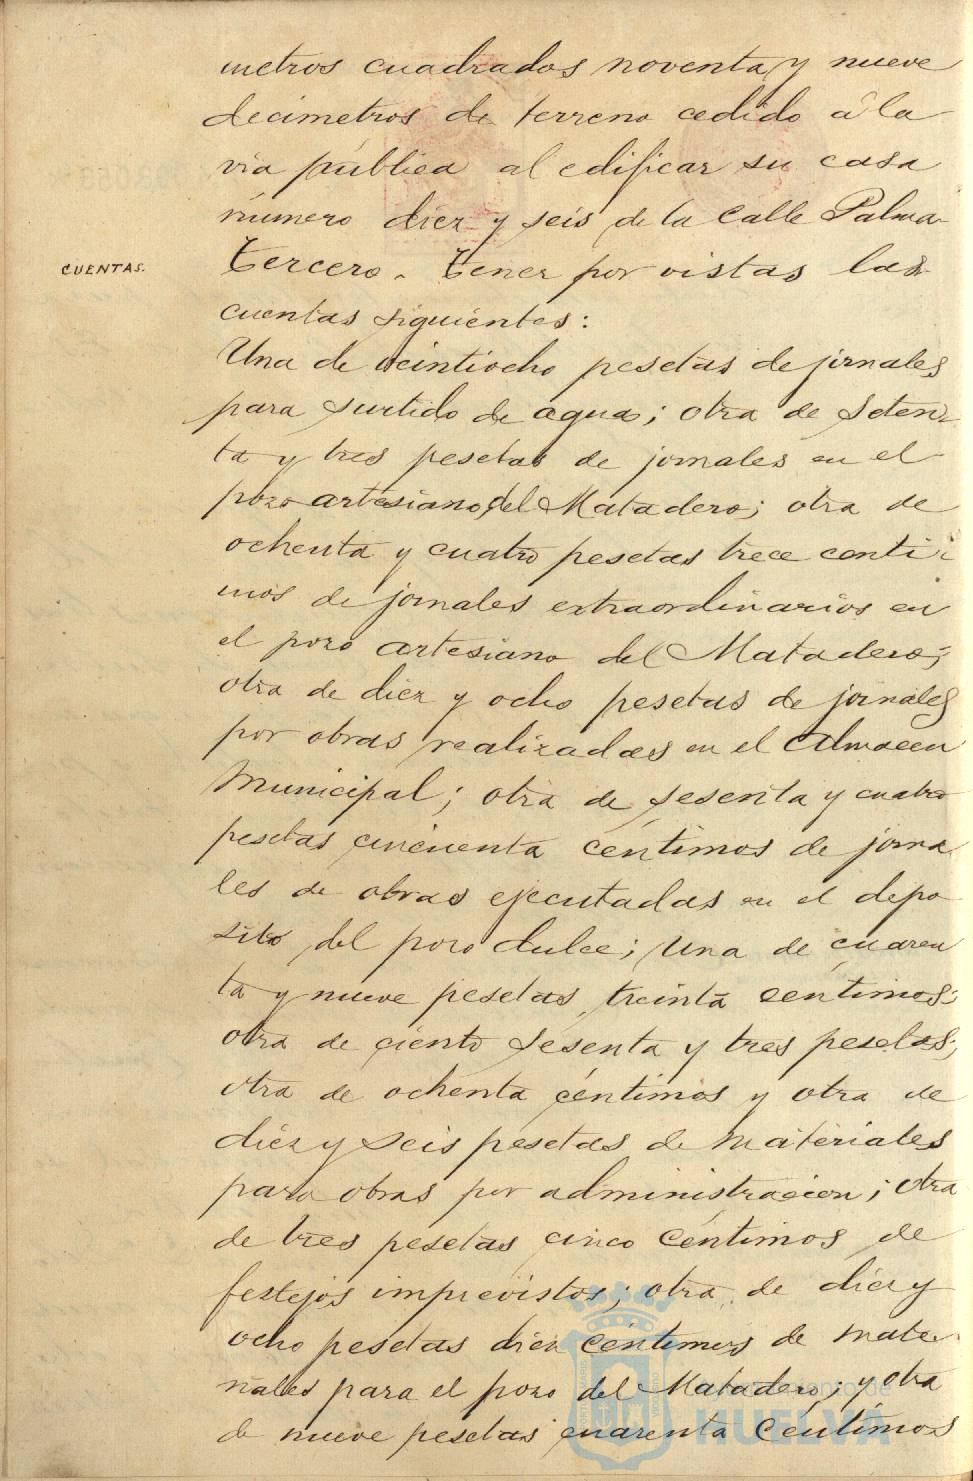 metros cuadrados noventa y nueve
decimetros de terreno cedido á la
via pública al edificar su casa
número diez y seis de la calle Palma.
CUENTAS.
Tercero. Tener por vistas las
cuentas siguientes:
Una de veintiocho pesetas de jornales
para surtido de agua; otra de seten-
ta y tres pesetas de jornales en el
pozo artesiano del Matadero; otra de
ochenta y cuatro pesetas trece centi
mos de jornales extraordinarios en
el pozo artesiano del Matadero;
otra de diez y ocho pesetas de jornales
por obras realizadas en el Almacen
Municipal; otra de sesenta y cuatro
pesetas cincuenta céntimos de jorna
les de obras ejecutadas en el depo
sito del pozo dulce; una de cuaren
ta y nueve pesetas treinta centimos;
otra de ciento sesenta y tres pesetas;
otra de ochenta céntimos y otra de
diez y seis pesetas de materiales
para obras por administracion; otra
de tres pesetas cinco céntimos de
festejos imprevistos; otra de diez y
ocho pesetas diez céntimos de mate-
riales para el pozo del Matadero; y otra
de nueve pesetas cuarenta céntimos
Ayuntamiento de
HUELVA